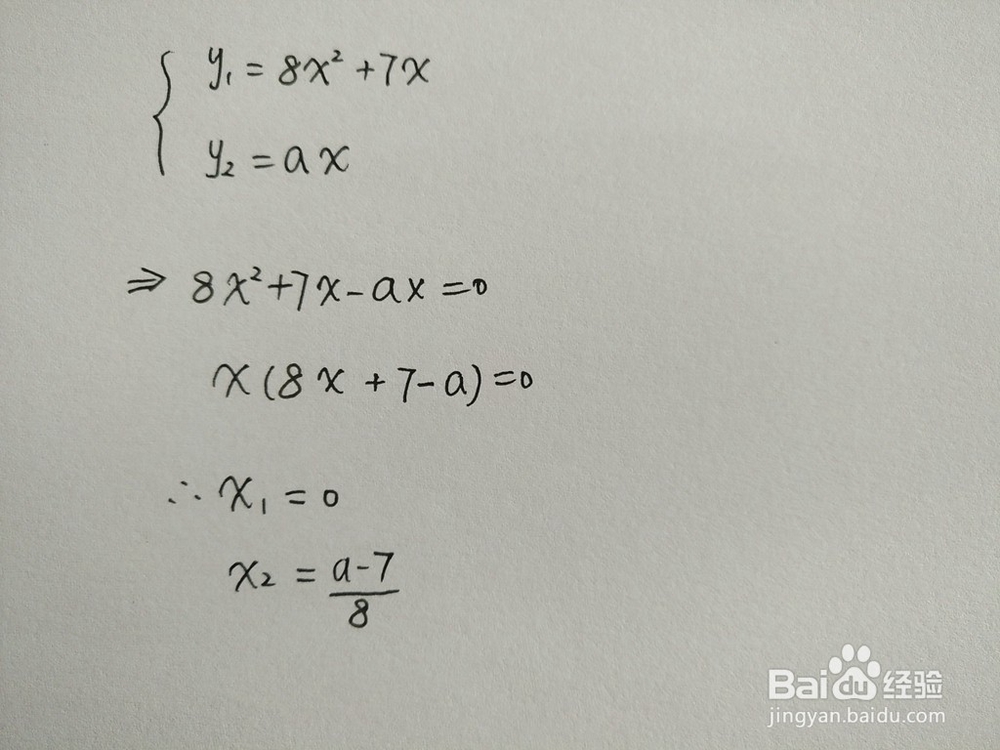 { y₁ = 8x² + 7x
y₂ = ax
⇒ 8x² + 7x - ax = 0
x(8x + 7 - a) = 0
∴ x₁ = 0
x₂ = (a-7)/8
Baidu 经验
jingyan.baidu.com